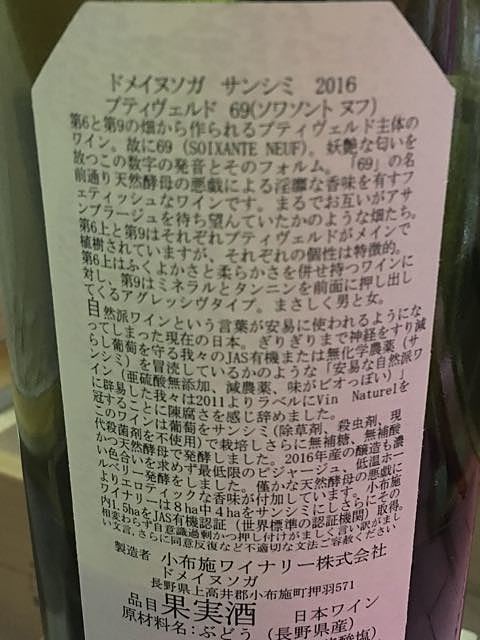 ドメイヌソガ サンシミ 2016
プティヴェルド 69(ソワソント ヌフ)
第6と第9の畑から作られるプティヴェルド主体の
ワイン。故に69（SOIXANTE NEUF)。妖艶な匂いを
放つこの数字の発音とそのフォルム。「69」の名
前通り天然酵母の悪戯による淫靡な香味を有すフ
ェティッシュなワインです。まるでお互いがアサ
ンブラージュを待ち望んていたかのような畑たち。
第6上と第9はそれぞれプティヴェルドがメインで
植樹されていますが、それぞれの個性は特徴的。
第6上はふくよかさと柔らかさを併せ持つワインに
対し、第9はミネラルとタンニンを前面に押し出し
てくるアグレッシヴタイプ。まさしく男と女。
自然派ワインという言葉が安易に使われるようにな
ってしまった現在の日本。ぎりぎりまで神経をすり減
らし葡萄を守る我々のJAS有機または無化学農薬（サ
ンシミ）を冒涜しているかのような「安易な自然派ワ
イン（亜硫酸無添加、減農薬、味がビオっぽい）」
に辟易した我々は2011よりラベルにVin Naturelを
冠することに陳腐さを感じ辞めました。
このワインは葡萄をサンシミ（除草剤、殺虫剤、現
代殺菌剤を不使用）で栽培しさらに無補糖、無補酸
かつ天然酵母で発酵しました。2016年産の醸造も濃
い色合いを求めず最低限のピジャージュ、低温ホー
ルベリー発酵をしました。僅かな天然酵母の悪戯に
よりエロティックな香味が付加しています。小布施
ワイナリーは8ha中4haをサンシミにしさらにその
内1.5haをJAS有機認証（世界標準の認証機関）取得。
相変わらず自意識過剰かつ押し付けがましく言い訳がまし
い文言、さらに同意反復など不適切な文法ご容赦ください
製造者 小布施ワイナリー株式会社
ドメイヌソガ
長野県上高井郡小布施町押羽571
品目 果実酒 日本ワイン
原材料名：ぶどう（長野県産）